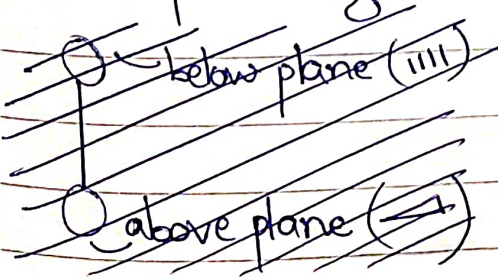 below plane (ıııı)
above plane (◁)